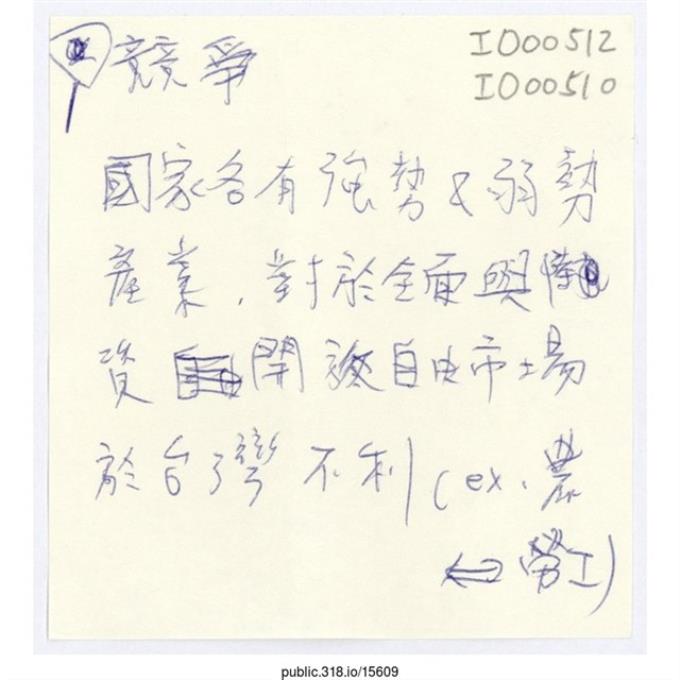 競爭
IO00512
IO00510
國家各有強勢&弱勢
產業,對於全面與陸
資開放自由市場
於台灣不利(ex.農
⇔勞工)
public.318.io/15609